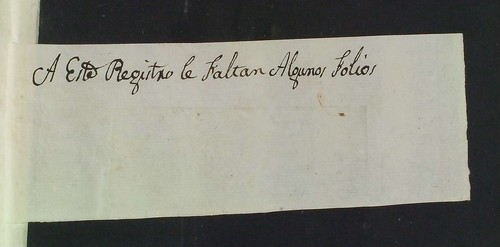 A Este Registro le Faltan Algunos Folios